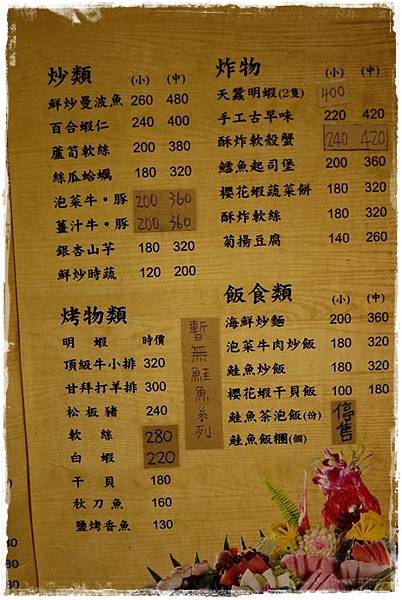 炒類 (小) (中)
鮮炒曼波魚 260 480
百合蝦仁 240 400
蘆筍軟絲 200 380
絲瓜蛤蠣 180 320
泡菜牛·豚 200 360
薑汁牛·豚 200 360
銀杏山芋 180 320
鮮炒時蔬 120 200
烤物類
明蝦 時價
頂級牛小排 320
甘拜打羊排 300
松板豬 240
軟絲 280
白蝦 220
干貝 180
秋刀魚 160
鹽烤香魚 130
暫無鮭魚系列
炸物 (小) (中)
天蠶明蝦(2隻) 400
手工古早味 220 420
酥炸軟殼蟹 240 420
鱈魚起司堡 200 360
櫻花蝦蔬菜餅 180 320
酥炸軟絲 180 320
菊揚豆腐 140 260
飯食類 (小) (中)
海鮮炒麵 200 360
泡菜牛肉炒飯 180 320
鮭魚炒飯 180 320
櫻花蝦干貝飯 100 180
鮭魚茶泡飯(份)
鮭魚飯糰(個)
停售